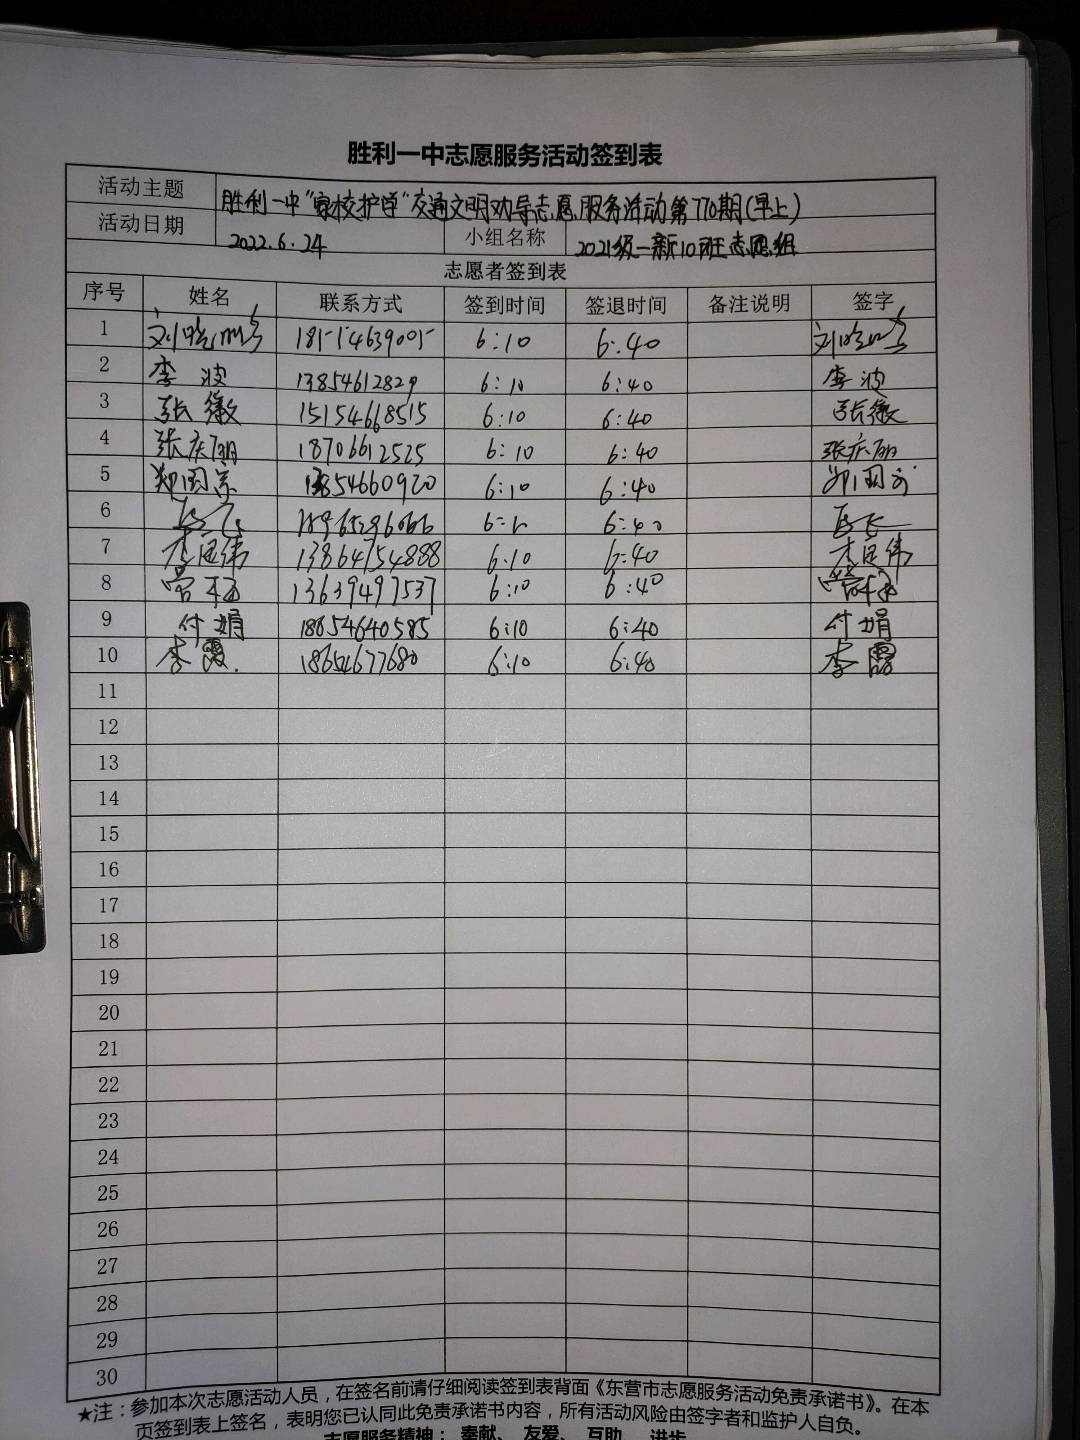 胜利一中志愿服务活动签到表
活动主题 胜利一中"家校护学"交通文明劝导志愿服务活动第770期(早上)
活动日期 2022.6.24 小组名称 2021级一新10班志愿组
志愿者签到表
序号 姓名 联系方式 签到时间 签退时间 备注说明 签字
1 刘晓 18154639005 6:10 6:40 刘晓
2 李波 13854612829 6:10 6:40 李波
3 张微 15154668515 6:10 6:40 张微
4 张庆丽 18706612525 6:10 6:40 张庆丽
5 郑国 13854660920 6:10 6:40 郑国
6 6:40
7 李国伟 13864754888 6:10 6:40 李国伟
8 13639497537 6:10 6:40
9 付娟 18654640585 6:10 6:40 付娟
10 李霞 18654677680 6:10 6:40 李霞
11
12
13
14
15
16
17
18
19
20
21
22
23
24
25
26
27
28
29
30
★注：参加本次志愿活动人员，在签名前请仔细阅读签到表背面《东营市志愿服务活动免责承诺书》。在本
页签到表上签名，表明您已认同此免责承诺书内容，所有活动风险由签字者和监护人自负。
志愿服务精神：奉献、友爱、互助、进步